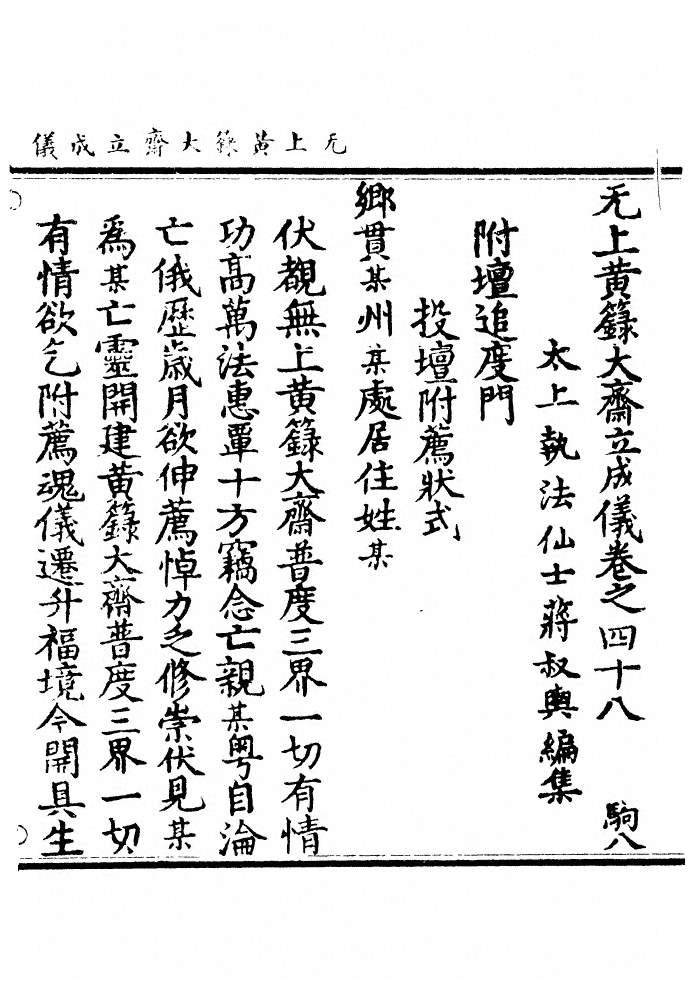 无上黄籙大齋立成儀
无上黄籙大齋立成儀卷之四十八 駒八
太上執法仙士蔣叔輿編集
附壇追度門
投壇附薦狀式
鄉貫某州某處居住姓某
伏覩無上黄籙大齋普度三界一切有情
功高萬法惠覃十方竊念亡親某粤自淪
亡俄歷歲月欲伸薦悼力乏修崇伏見某
爲某亡靈開建黄籙大齋普度三界一切
有情欲乞附薦魂儀遷升福境今開具生